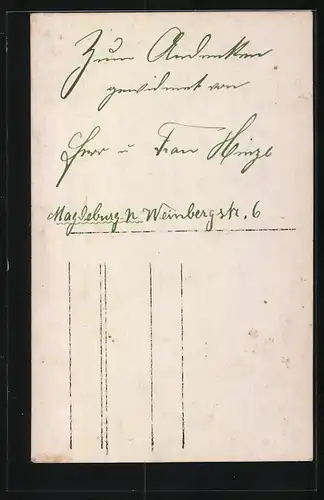 Zum Andenken
gewidmet von
Herr u Frau Hinze
Magdeburg N. Weinbergstr. 6